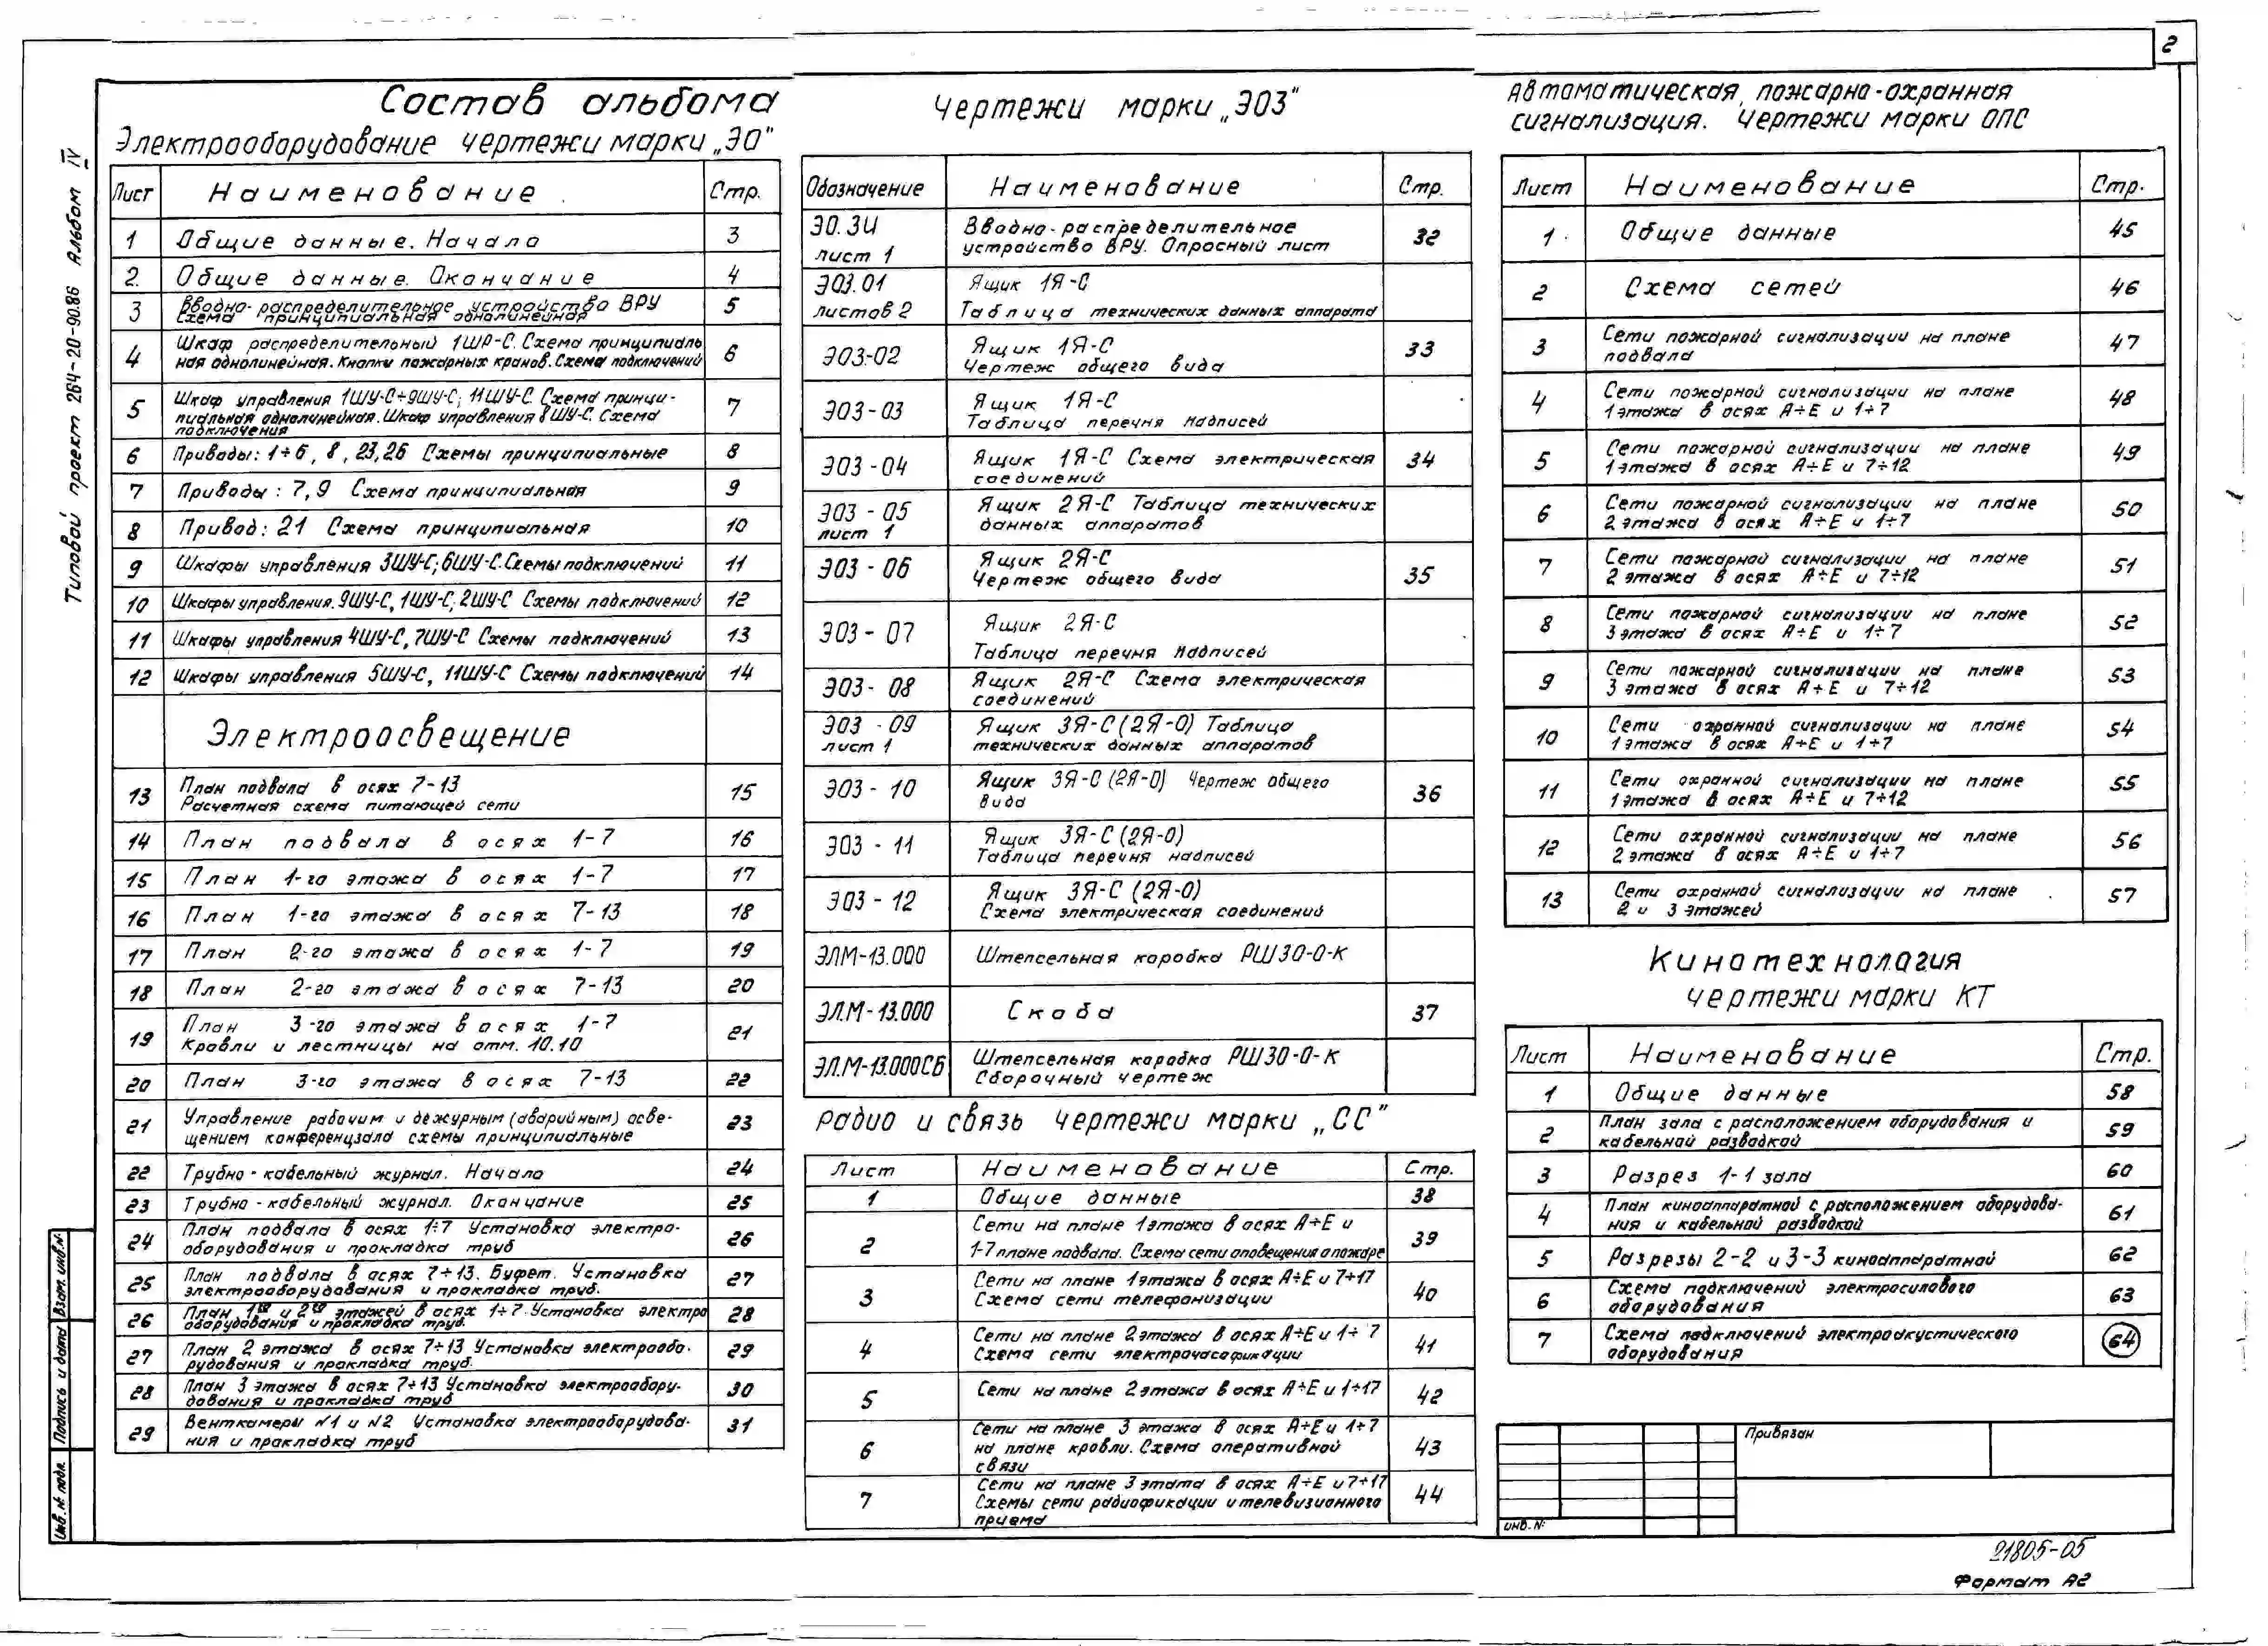 2
Типовой проект 264-20-90.86 Альбом IV
Состав альбома
Электрооборудование чертежи марки „ЭО"
Лист Наименование Стр.
1 Общие данные. Начало 3
2. Общие данные. Окончание 4
3 Вводно-распределительное устройство ВРУ 5
Схема принципиальная однолинейная
4 Шкаф распределительный 1ШР-С. Схема принципиаль 6
ная однолинейная. Кнопки пожарных кранов. Схема подключений
5 Шкаф управления 1ШУ-С÷9ШУ-С; 11ШУ-С. Схема принци- 7
пиальная однолинейная. Шкаф управления 8ШУ-С. Схема
подключения
6 Приводы: 1÷6, 8, 23,26 Схемы принципиальные 8
7 Приводы: 7,9 Схема принципиальная 9
8 Привод: 21 Схема принципиальная 10
9 Шкафы управления 3ШУ-С; 6ШУ-С. Схемы подключений 11
10 Шкафы управления. 9ШУ-С, 1ШУ-С; 2ШУ-С Схемы подключений 12
11 Шкафы управления 4ШУ-С, 7ШУ-С Схемы подключений 13
12 Шкафы управления 5ШУ-С, 11ШУ-С Схемы подключений 14
Электроосвещение
13 План подвала в осях 7-13 15
Расчетная схема питающей сети
14 План подвала в осях 1-7 16
15 План 1-го этажа в осях 1-7 17
16 План 1-го этажа в осях 7-13 18
17 План 2-го этажа в осях 1-7 19
18 План 2-го этажа в осях 7-13 20
19 План 3-го этажа в осях 1-7 21
Кровли и лестницы на отм. 10.10
20 План 3-го этажа в осях 7-13 22
21 Управление рабочим и дежурным (аварийным) осве- 23
щением конференцзала схемы принципиальные
22 Трубно-кабельный журнал. Начало 24
23 Трубно-кабельный журнал. Окончание 25
24 План подвала в осях 1÷7 Установка электро- 26
оборудования и прокладка труб
25 План подвала в осях 7÷13. Буфет. Установка 27
электрооборудования и прокладка труб.
26 План 1го и 2го этажей в осях 1÷7. Установка электро 28
оборудования и прокладка труб.
27 План 2 этажа в осях 7÷13 Установка электрообо- 29
рудования и прокладка труб.
28 План 3 этажа в осях 7÷13 Установка электрообору- 30
дования и прокладка труб
29 Венткамеры N1 и N2 Установка электрооборудова- 31
ния и прокладка труб
Чертежи марки „ЭОЗ"
Обозначение Наименование Стр.
ЭО.ЗИ Вводно-распределительное 32
лист 1 устройство ВРУ. Опросный лист
ЭОЗ.01 Ящик 1Я-С
листов 2 Таблица технических данных аппарата
ЭОЗ-02 Ящик 1Я-С 33
Чертеж общего вида
ЭОЗ-03 Ящик 1Я-С
Таблица перечня надписей
ЭОЗ-04 Ящик 1Я-С Схема электрическая 34
соединений
ЭОЗ-05 Ящик 2Я-С Таблица технических
лист 1 данных аппаратов
ЭОЗ-06 Ящик 2Я-С 35
Чертеж общего вида
ЭОЗ-07 Ящик 2Я-С
Таблица перечня надписей
ЭОЗ-08 Ящик 2Я-С Схема электрическая
соединений
ЭОЗ-09 Ящик 3Я-С (2Я-0) Таблица
лист 1 технических данных аппаратов
ЭОЗ-10 Ящик 3Я-С (2Я-0) Чертеж общего 36
вида
ЭОЗ-11 Ящик 3Я-С (2Я-0)
Таблица перечня надписей
ЭОЗ-12 Ящик 3Я-С (2Я-0)
Схема электрическая соединений
ЭЛМ-13.000 Штепсельная коробка РШ30-0-К
ЭЛ.М-13.000 Скоба 37
ЭЛ.М-13.000СБ Штепсельная коробка РШ30-0-К
Сборочный чертеж
Радио и связь чертежи марки „СС"
Лист Наименование Стр.
1 Общие данные 38
2 Сети на плане 1 этажа в осях А÷Е и 39
1-7 плане подвала. Схема сети оповещения о пожаре
3 Сети на плане 1 этажа в осях А÷Е и 7÷17 40
Схема сети телефонизации
4 Сети на плане 2 этажа в осях А÷Е и 1÷7 41
Схема сети электрочасофикации
5 Сети на плане 2 этажа в осях А÷Е и 1÷17 42
6 Сети на плане 3 этажа в осях А÷Е и 1÷7 43
на плане кровли. Схема оперативной
связи
7 Сети на плане 3 этата в осях А÷Е и 7÷17 44
Схемы сети радиофикации и телевизионного
приема
Автоматическая, пожарно-охранная
сигнализация. Чертежи марки ОПС
Лист Наименование Стр.
1 Общие данные 45
2 Схема сетей 46
3 Сети пожарной сигнализации на плане 47
подвала
4 Сети пожарной сигнализации на плане 48
1 этажа в осях А÷Е и 1÷7
5 Сети пожарной сигнализации на плане 49
1 этажа в осях А÷Е и 7÷12
6 Сети пожарной сигнализации на плане 50
2 этажа в осях А÷Е и 1÷7
7 Сети пожарной сигнализации на плане 51
2 этажа в осях А÷Е и 7÷12
8 Сети пожарной сигнализации на плане 52
3 этажа в осях А÷Е и 1÷7
9 Сети пожарной сигнализации на плане 53
3 этажа в осях А÷Е и 7÷12
10 Сети охранной сигнализации на плане 54
1 этажа в осях А÷Е и 1÷7
11 Сети охранной сигнализации на плане 55
1 этажа в осях А÷Е и 7÷12
12 Сети охранной сигнализации на плане 56
2 этажа в осях А÷Е и 1÷7
13 Сети охранной сигнализации на плане 57
2 и 3 этажей
Кинотехнология
чертежи марки КТ
Лист Наименование Стр.
1 Общие данные 58
2 План зала с расположением оборудования и 59
кабельной разводкой
3 Разрез 1-1 зала 60
4 План киноаппаратной с расположением оборудова- 61
ния и кабельной разводкой
5 Разрезы 2-2 и 3-3 киноаппаратной 62
6 Схема подключений электросилового 63
оборудования
7 Схема подключений электроакустического 64
оборудования
Привязан
инв. №
Инв. № подл. Подпись и дата Взам. инв. №
21805-05
Формат А2